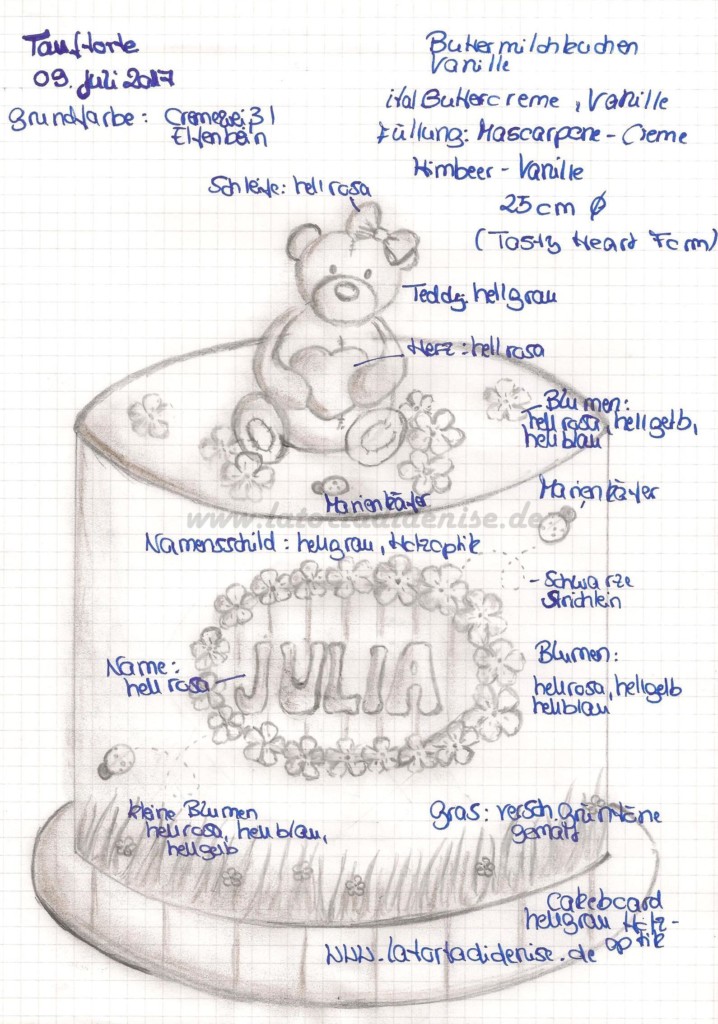 Tauftorte
09. Juli 2017
Grundfarbe: Cremeweiß /
Elfenbein
Buttermilchkuchen
Vanille
ital Buttercreme, Vanille
Füllung: Mascarpone-Creme
Himbeer-Vanille
25 cm Ø
(Tasty Heart Form)
Schleife: hellrosa
Teddy: hellgrau
Herz: hellrosa
Blumen:
hellrosa, hellgelb,
hellblau
Marienkäfer
Marienkäfer
www.latortadidenise.de
Namensschild: hellgrau, Holzoptik
- Schwarze
Strichlein
Name:
hellrosa
JULIA
Blumen:
hellrosa, hellgelb
hellblau
kleine Blumen
hellrosa, hellblau,
hellgelb
Gras: versch. Grüntöne
gemalt
Cakeboard
hellgrau Holz-
optik
www.latortadidenise.de